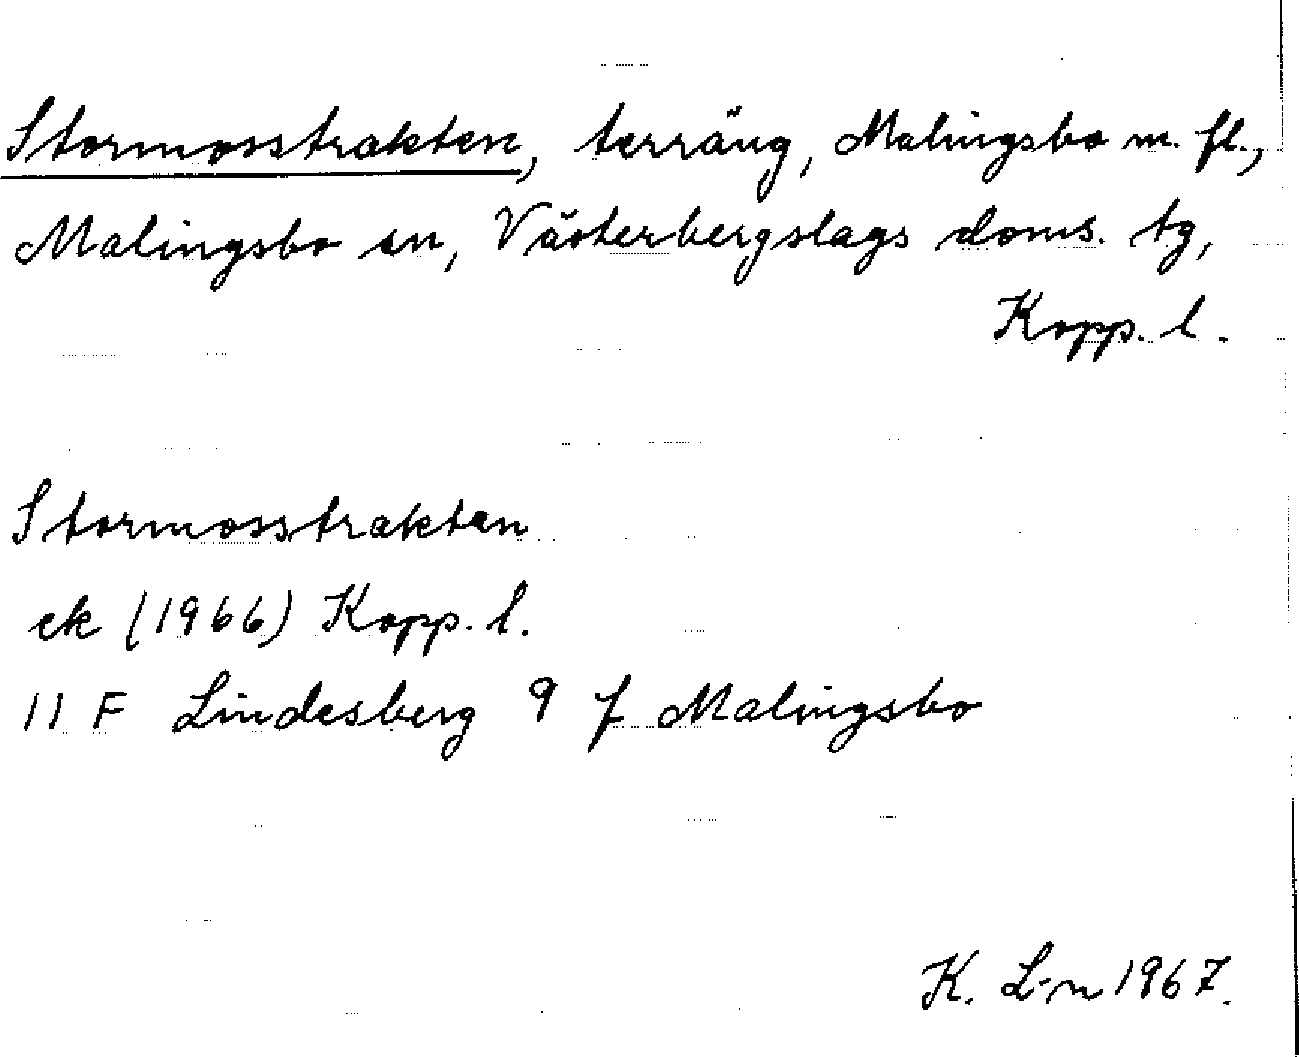 Stormosstrakten, terräng, Malingsbo m. fl.,
Malingsbo sn, Västerbergslags doms. tg,
Kopp. l.
Stormosstrakten
ek (1966) Kopp. l.
11 F Lindesberg 9 f Malingsbo
K. L-n 1967.